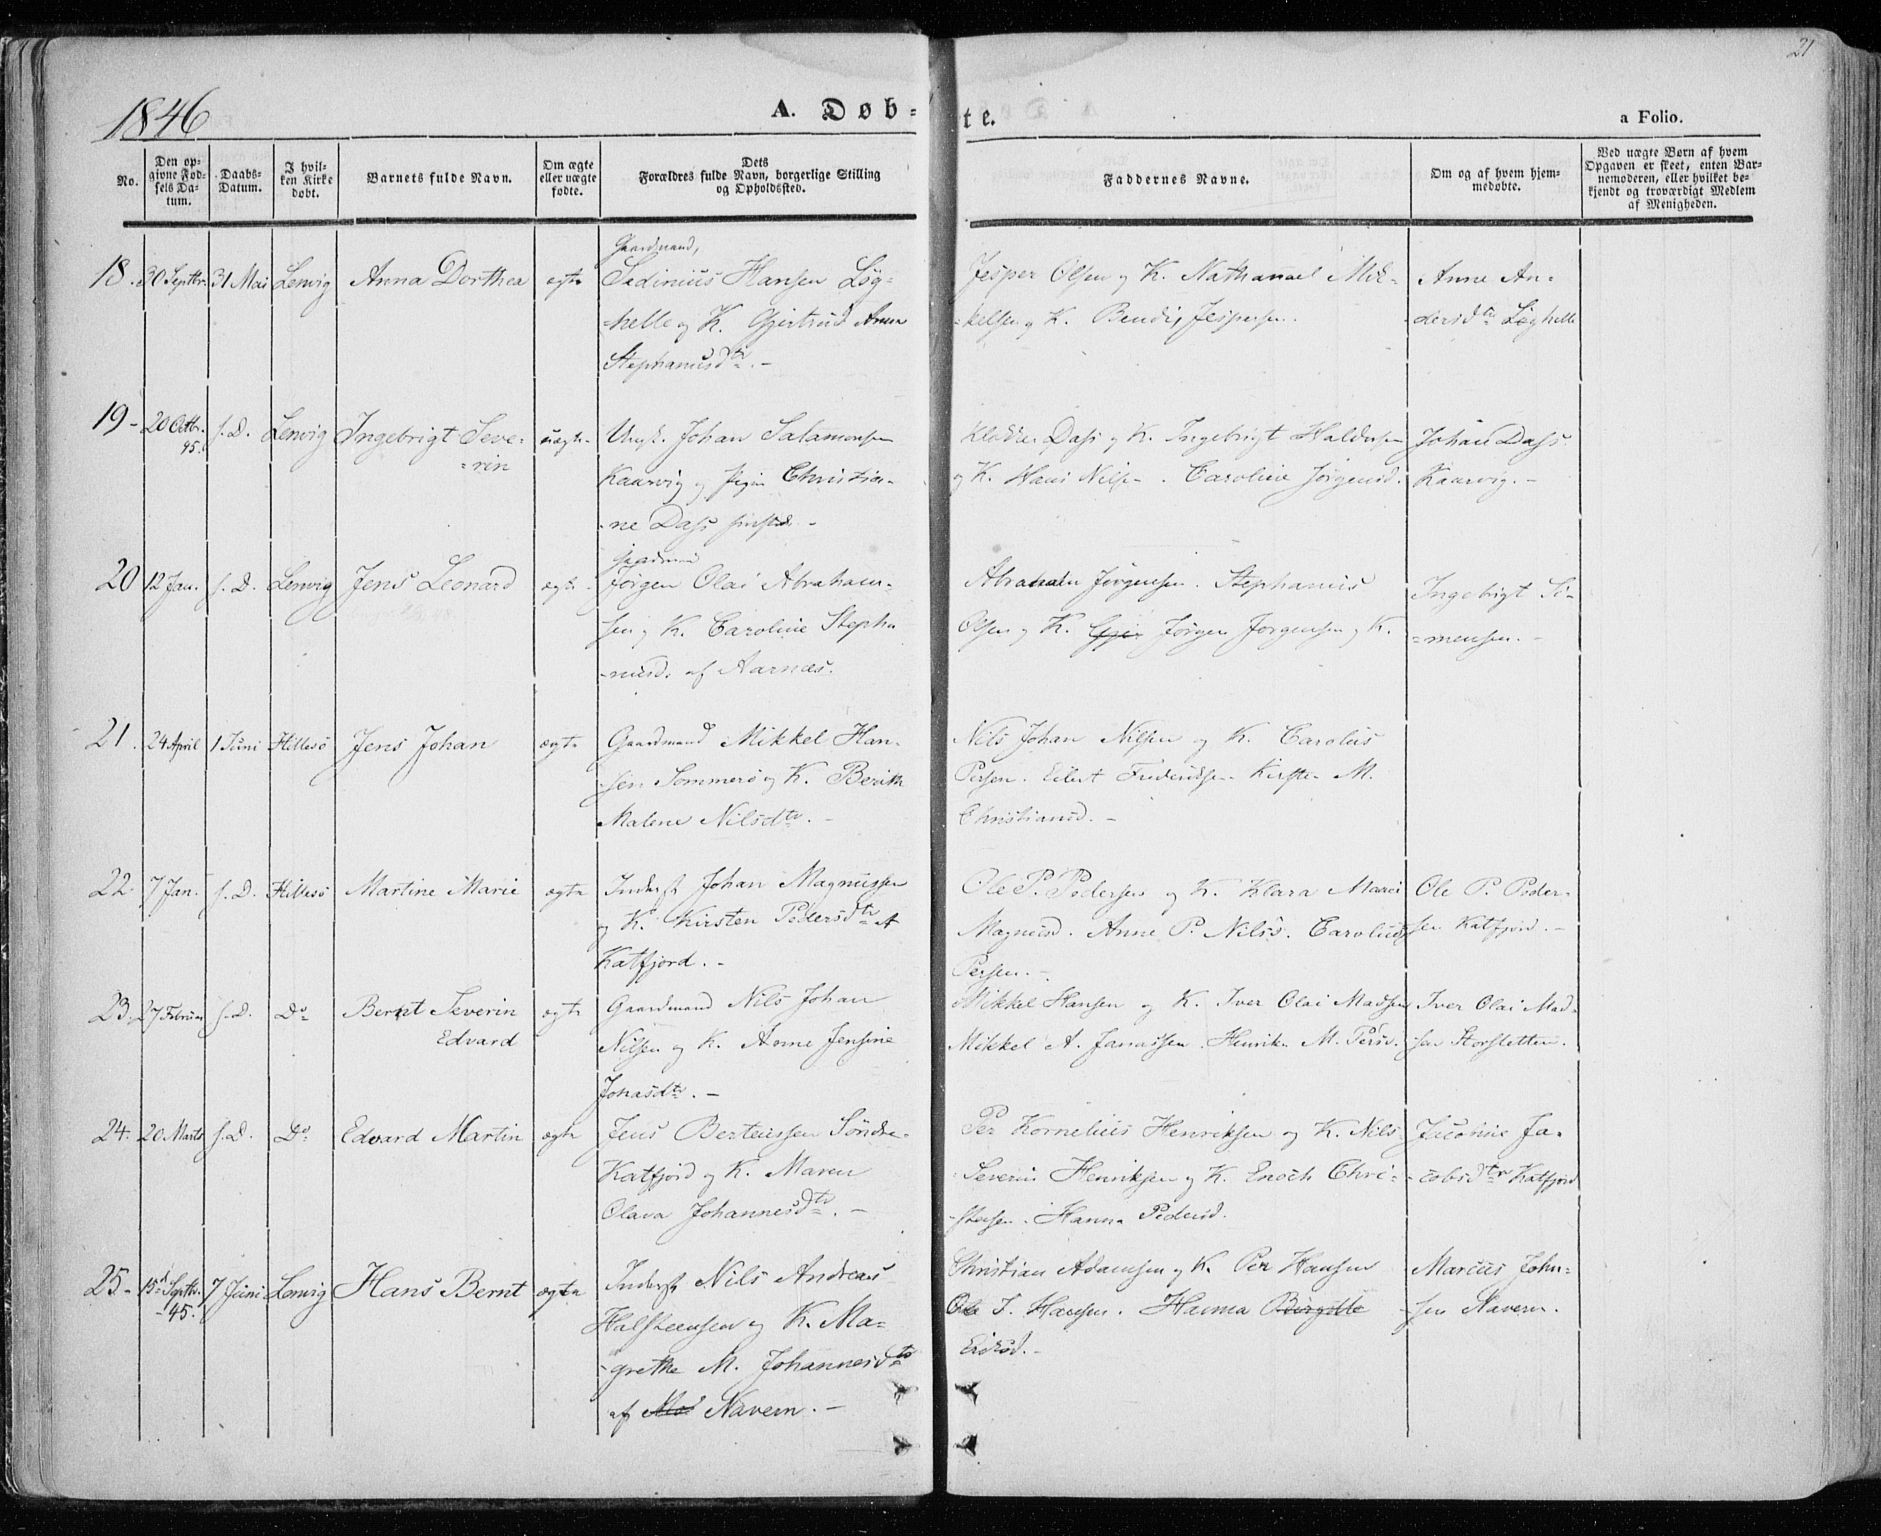 21
1846
A. Døb=te.
a Folio.
No.
Den op=
givne Fød=
sels Da=
tum.
Daabs=
Datum.
I hvil=
ken Kirke
døbt.
Barnets fulde Navn.
Om ægte
eller uægte
fødte.
Dets
Forældres fulde Navn, borgerlige Stilling
og Opholdssted.
Faddernes Navne.
Om og af hvem hjem=
medøbte.
Ved uægte Børn af hvem
Opgaven er skeet, enten Bar=
nemoderen, eller hvilket be=
kjendt og troværdigt Medlem
af Menigheden.
18. 30 Septbr. 31 Mai Lenvig Anna Dorthea egte
Gaardmand,
Sadinius Hansen Løg=
=helle og K. Gjertrud Anna
Stephanusdtr. -
Jesper Olsen og K. Nathanael Mik=
=kelsen og K. Jespersen.
Anne An=
dersdtr Løghelle
19- 20 Octbr. 45. s. D. Lenvig Ingebrigt Seve=
=rin
uægte
Ungk. Johan Salamonsen
Kaarvig og Pigen Christia=
=ne Dass -
Dass og K. Ingebrigt Haldorsen
og K. Hans Nils. Caroline Jørgensd.
Johan Dass
Kaarvig. -
20 12 Jan. s. D. Lenvig Jens Leonard ægte
Gaardmand
Jørgen Olai Abraham=
sen og K. Caroline Stepha
=nusd. af Aarnæs.
Abraham Jørgensen. Stephanus
Olsen og K. Jørgen Jørgensen og K.
Ingebrigt Si=
=monsen. -
21. 24 April 1 Juni Hillesø Jens Johan ægte
Gaardmand Mikkel Han=
sen Sommerø og K. Berith
Malene Nilsdtr. -
Nils Johan Nilsen og K. Carolus
Persen. Eilert Frederiksen. Kirsten M.
Christiansd. -
22. 7 Jan. s. D. Hillesø Martine Marie ægte
Inderst Johan Magnussen
og K. Kirsten Pedersdtr af
Katfjord. -
Ole P. Pedersen og K. Klara Marie
Magnusd. Anne P. Nilsd. Carolus
Persen. -
Ole P. Peder=
sen Katfjord. -
23. 27 Februar s. D. Do Bernt Severin
Edvard
ægte
Gaardmand Nils Johan
Nilsen og K. Anne Jensine
Jonasdtr. -
Mikkel Hansen og K. Iver Olai Madsen
Mikkel A. Jonassen. Henrik M. Persd.
Iver Olai Mad=
sen Storsletten.
24. 20 Marts s. D. Do Edvard Martin ægte
Jens Berteussen Søndre
Katfjord og K. Maren
Olava Johannesdtr. -
Per Kornelius Henriksen og K. Nils
Severin Henriksen og K. Enoch Chri=
=stensen. Hanna Pedersd.
Jacobine Ja=
=cobsdtr Katfjord
25- 15d Septbr. 45. 7 Juni Lenvig Hans Bernt ægte
Inderst Nils Andreas
Halsteensen og K. Ma=
=grethe M. Johannesdtr
af Mo Navern. -
Christian Adamsen og K. Per Hansen
Ole I. Hansen. Hanna Birgitte
Eriksd. -
Marcus John=
sen Navern.